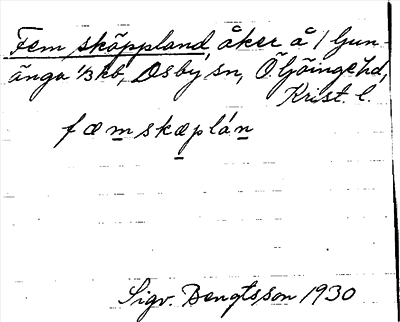 Fem sköppland, åker å Ljun
änga 1/3 kb, Osby sn, Ö. Göinge hd,
Krist. l.
fæmskæplán
Sigv. Bengtsson 1930